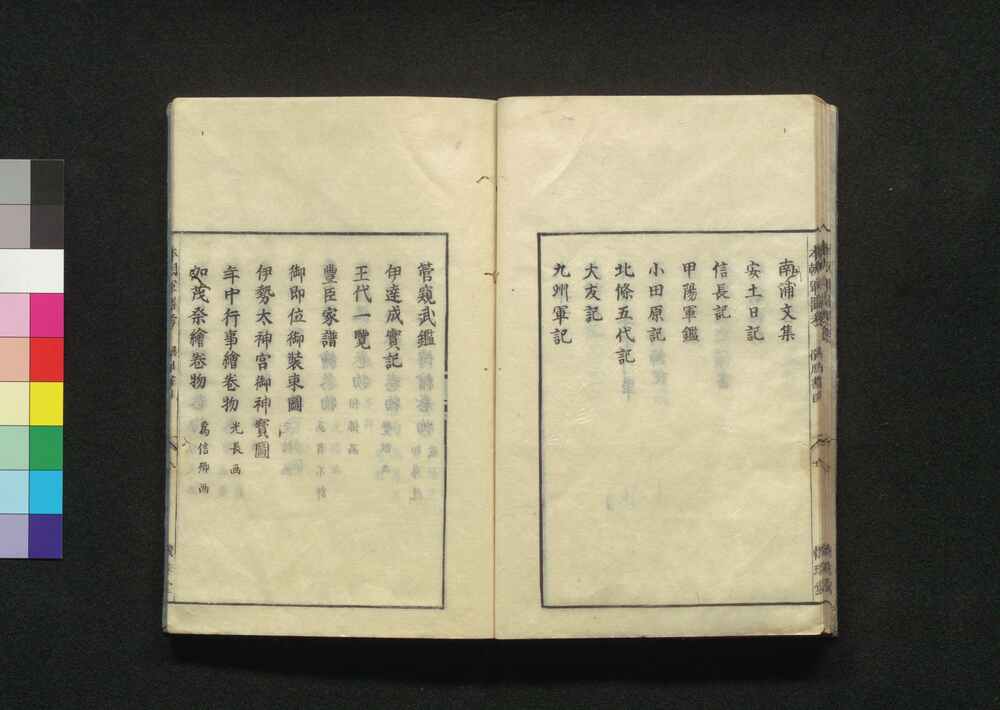 南浦文集
安土日記
信長記
甲陽軍鑑
小田原記
北條五代記
大友記
九州軍記
管窺武鑑
伊達成實記
王代一覽
豐臣家譜
御即位御裝束圖
伊勢太神宮御神寳圖
年中行事繪卷物 光長画
加茂祭繪卷物 爲信卿画